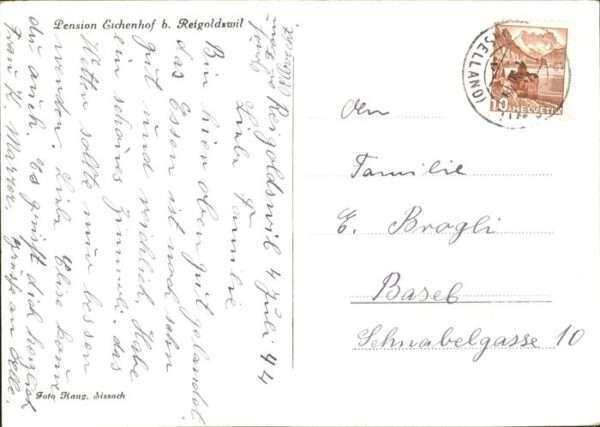 Pension Eschenhof b. Reigoldswil
Reigoldswil 4 Juli 44
Liebe Familie
Bin hier oben gut gelandet.
das Essen ist auch sehr
gut und reichlich. Habe
ein schönes Zimmerli. das
Wetter sollte nur besser
werden. Liebe Elise komme
du auch. Es grüsst dich herzlich
Frau K. grüsse an Alle.
Foto Hang. Sissach
SELLAND)
10 HELVETIA
den
Familie
E. Brogli
Basel
Schnabelgasse 10